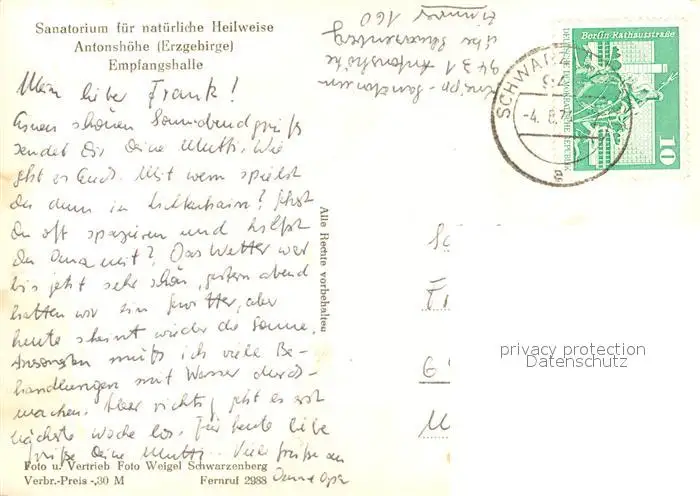 Sanatorium für natürliche Heilweise
Antonshöhe (Erzgebirge)
Empfangshalle
Mein lieber Frank!
Einen schönen Sonnabendgruß
sendet Dir Deine Mutti. Wie
geht es Euch. Mit wem spielst
du denn in? Gehst
Du oft spazieren und hilfst
Du Oma mit? Das Wetter war
bis jetzt sehr schön, gestern abend
hatten wir ein Gewitter, aber
heute scheint wieder die Sonne.
Ansonsten muß ich viele Be-
handlungen mit Wasser durch-
machen. Aber richtig geht es erst
nächste Woche los. Für heute liebe
Grüße Deine Mutti. Viele Grüße an
Oma + Opa
Foto u. Vertrieb Foto Weigel Schwarzenberg
Verbr.-Preis -,30 M Fernruf 2988
Alle Rechte vorbehalten
Kneipp-Sanatorium
9431 Antonshöhe
über Schwarzenberg
Zimmer 160
SCHWARZ
-4. 8.
Berlin Rathausstraße
DEUTSCHE DEMOKRATISCHE REPUBLIK
10
privacy protection
Datenschutz